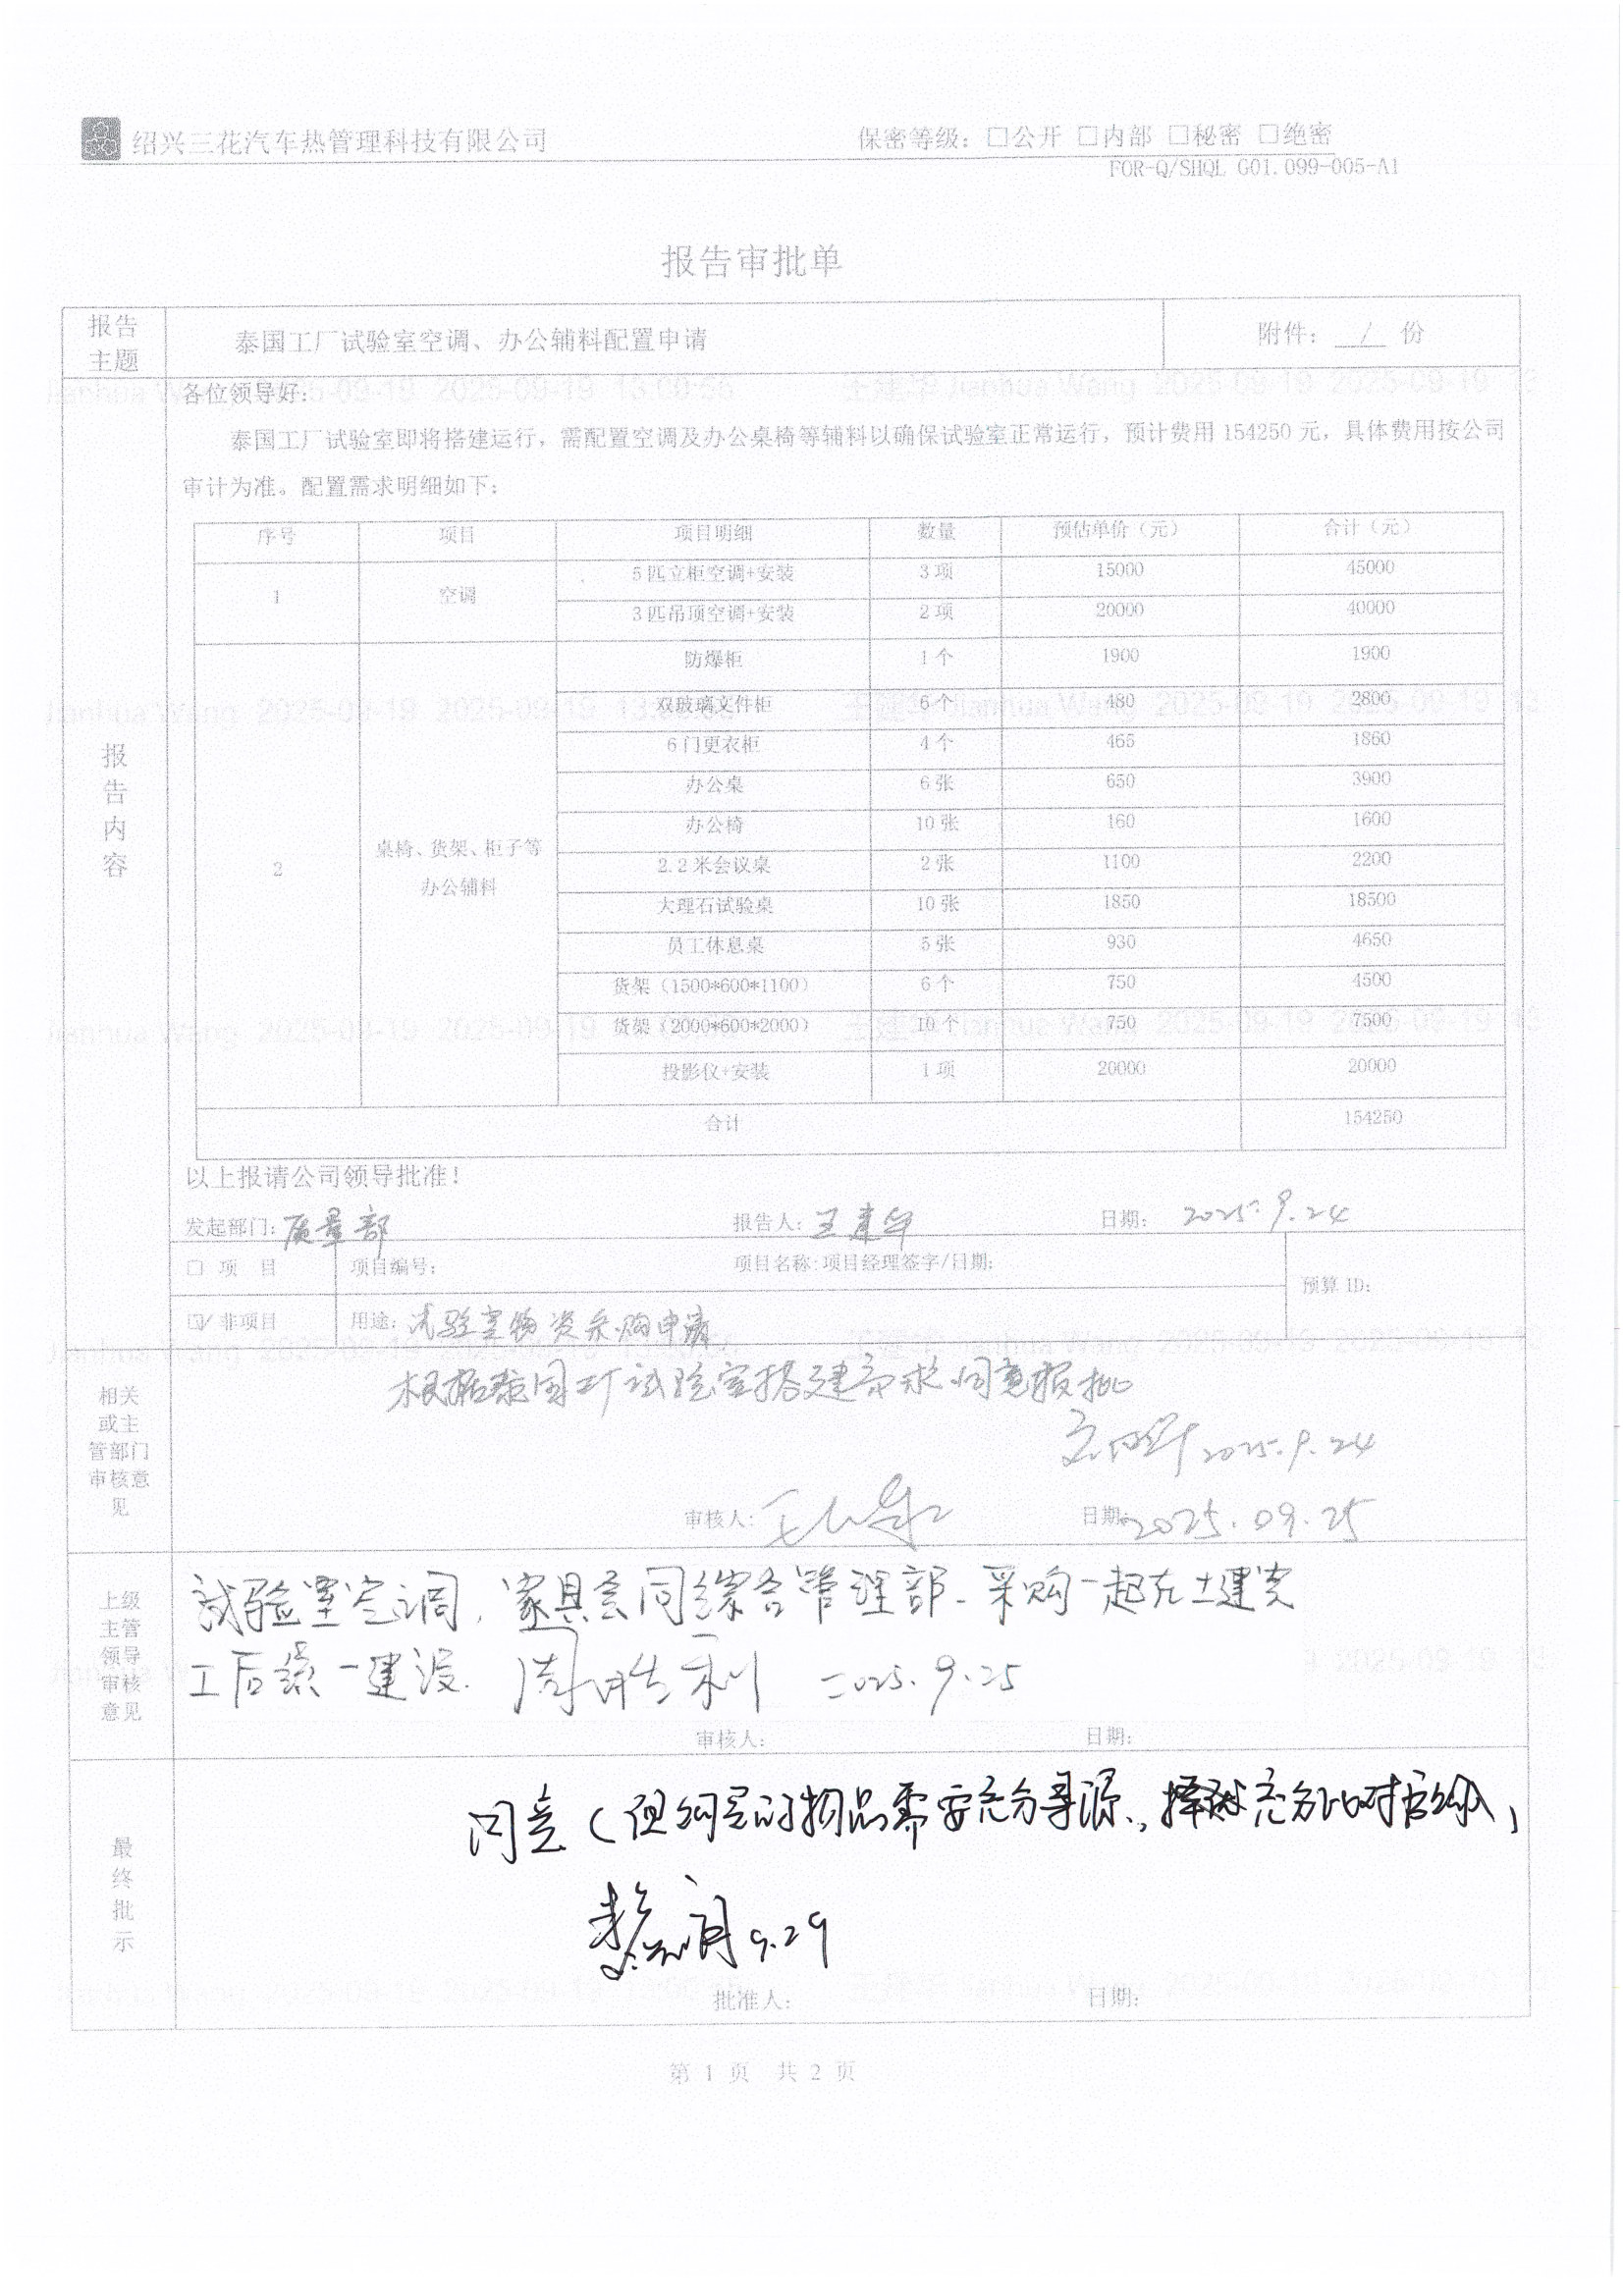 绍兴三花汽车热管理科技有限公司 保密等级：☐公开 ☐内部 ☐秘密 ☐绝密
FOR-Q/SHQL G01.099-005-A1
报告审批单
报告主题 泰国工厂试验室空调、办公辅料配置申请 附件： / 份
报告内容
各位领导好：
泰国工厂试验室即将搭建运行，需配置空调及办公桌椅等辅料以确保试验室正常运行，预计费用 154250 元，具体费用按公司
审计为准。配置需求明细如下：
序号 项目 项目明细 数量 预估单价（元） 合计（元）
1 空调 5 匹立柜空调+安装 3 项 15000 45000
3 匹吊顶空调+安装 2 项 20000 40000
2 桌椅、货架、柜子等办公辅料 防爆柜 1 个 1900 1900
双玻璃文件柜 6 个 480 2800
6 门更衣柜 4 个 465 1860
办公桌 6 张 650 3900
办公椅 10 张 160 1600
2.2 米会议桌 2 张 1100 2200
大理石试验桌 10 张 1850 18500
员工休息桌 5 张 930 4650
货架（1500*600*1100） 6 个 750 4500
货架（2000*600*2000） 10 个 750 7500
投影仪+安装 1 项 20000 20000
合计 154250
以上报请公司领导批准！
发起部门：质量部 报告人：王建华 日期： 2025.9.24
☐ 项 目 项目编号： 项目名称：项目经理签字/日期： 预算 ID：
☑ 非项目 用途：试验室物资采购申请
相关或主管部门审核意见
根据泰国工厂试验室搭建需求，同意报批
2025.9.24
审核人： 日期：2025.09.25
上级主管领导审核意见
试验室空调，家具会同综合管理部、采购一起在土建完
工后统一建设. 周胜利 2025.9.25
审核人： 日期：
最终批示
同意（但购买的物品需要充分寻源，充分比对后
9.29
批准人： 日期：
第 1 页 共 2 页
Jianhua Wang 2025-09-19